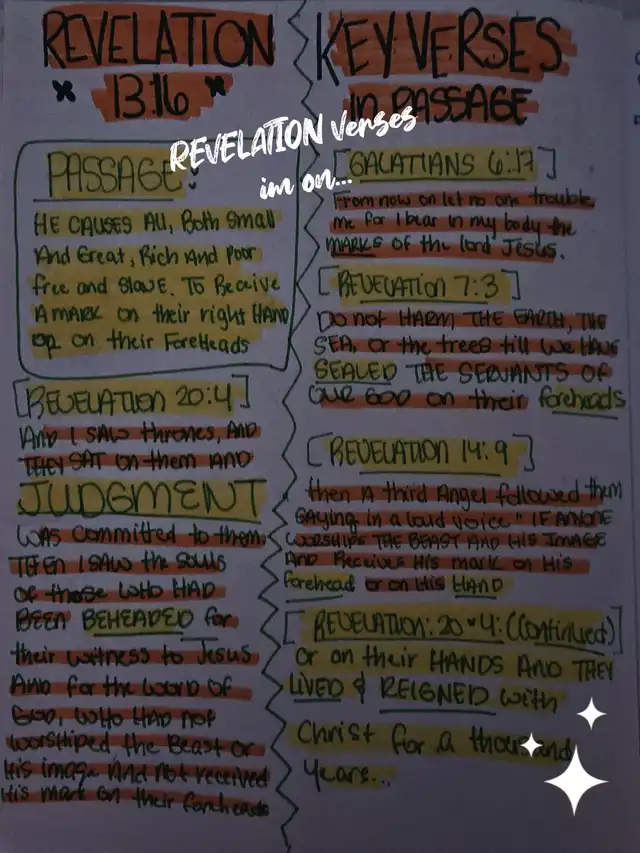 REVELATION
13:16
REVELATION Verses
im on...
PASSAGE:
HE CAUSES All, Both Small
And Great, Rich And Poor
free and SlAVE. To Receive
A MARK on their right HAND
or on their ForeHeads
[REVELATION 20:4]
And I SAW thrones, AND
THEY SAT on them AND
JUDGMENT
WAS Committed to them.
THEN I SAW the Souls
of those WHO HAD
BEEN BEHEADED for
their witness to Jesus
AND for the WORD OF
GOD, WHO HAD NOT
worshiped the Beast or
His image And not received
His mark on their foreheads
KEY VERSES
in PASSAGE
[GALATIANS 6:17]
From now on let no one trouble
me for I bear in my body the
MARKS of the lord Jesus.
[REVElation 7:3]
Do not HARM THE EARTH, THE
SEA, or the trees till WE HAVE
SEALED THE SERVANTS OF
OUR GOD on their foreheads
[REVElATION 14:9]
then A third Angel followed them
SAYing in a loud voice "IF ANYONE
WORSHIPS THE BEAST AND HIS IMAGE
And Receives His mark on His
forehead or on His HAND
[REVELATION: 20*4: (Continued)]
or on their HANDS AND THEY
LIVED & REIGNED with
Christ for a thousand
Years...